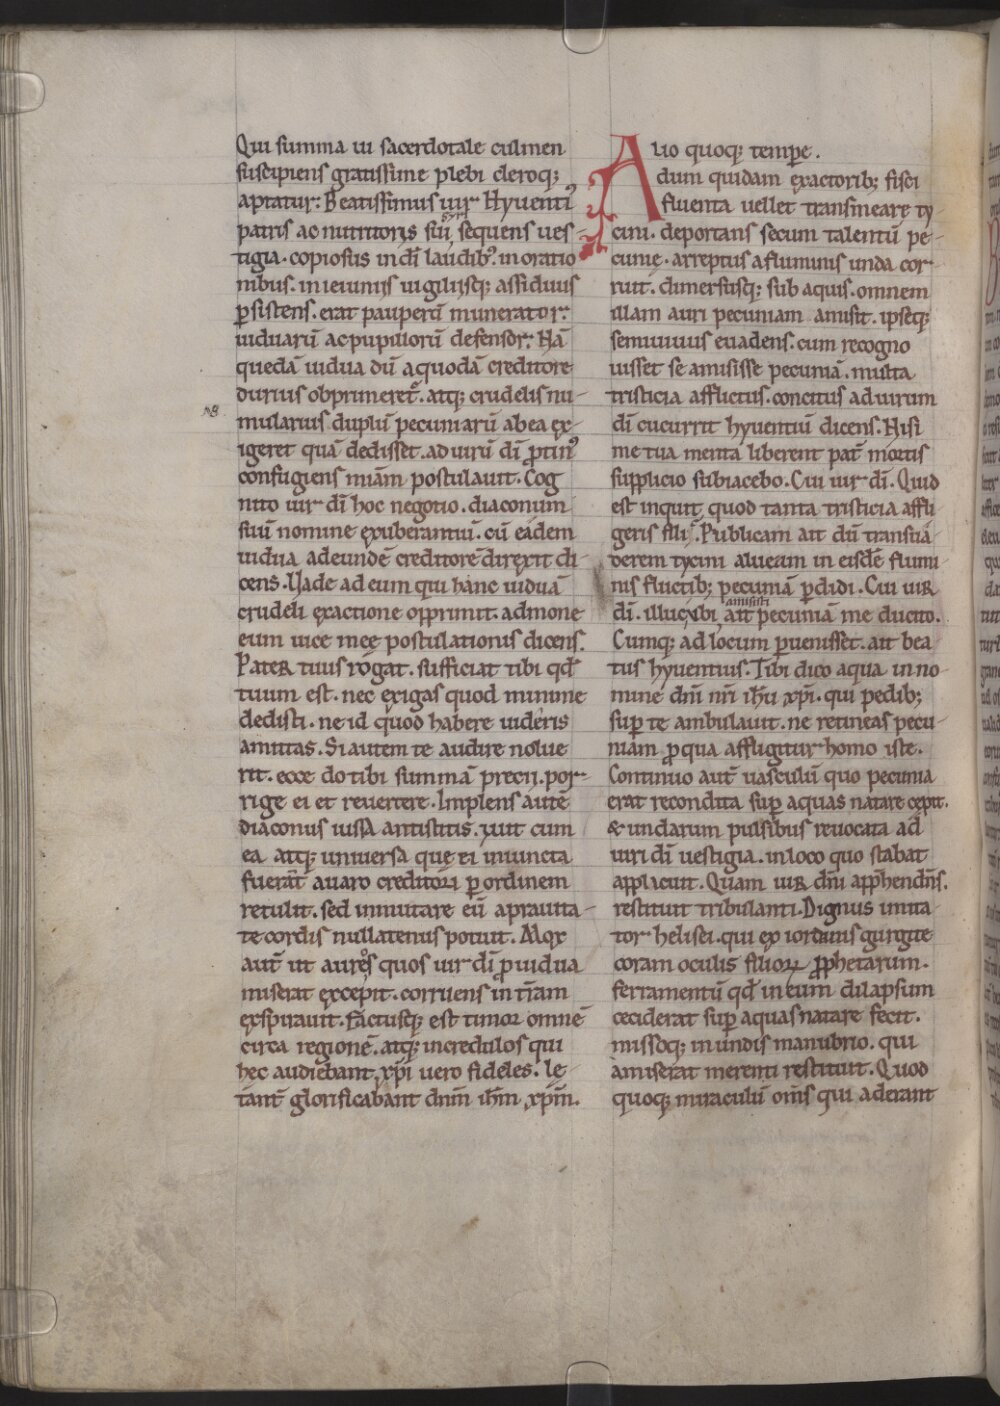 Qui summa ui sacerdotale culmen
suscipiens gratissime plebi cleroq;
aptatur: Beatissimus uir Hyuentiꝰ
patris ac nutritoris sui syri sequens ues-
tigia. copiosus in dī laudibꝰ. in oratio
nibus. in ieiuniis uigiliisq; assiduus
ꝑsistens. erat pauperū munerator:
uiduarū ac pupillorū defensor: Nā
quedā uidua dū a quodā creditore
durius obprimeret᷑. atq; crudelis nu-
mularius duplū pecuniarū ab ea ex-
igeret quā dedisset. ad uirū dī ꝓtinꝰ
confugiens miām postulauit. Cog
nito uir dī hoc negotio. diaconum
suū nomine exuberantiū. cū eadem
uidua ad eundē creditorē direxit di-
cens. Uade ad eum qui hanc uiduā
crudeli exactione opprimit. admone
eum uice meę postulationis dicens.
Pater tuus rogat. sufficiat tibi qđ
tuum est. nec exigas quod minime
dedisti. ne id quod habere uideris
amittas. Si autem te audire nolue
rit. ecce do tibi summā precii. por-
rige ei et reuertere. Implens autē
diaconus iussa antistitis. iuit cum
ea atq; uniuersa quę ei iniuncta
fuerāt auaro creditori ꝑ ordinem
retulit. sed inmutare eū a prauita-
te cordis nullatenus potuit. Mox
aut̄ ut aureos quos uir dī ꝓ uidua
miserat excepit. corruens in t̄ram
exspirauit. Factusq; est timor omnē
circa regionē. atq; incredulos qui
hec audiebant. xp̄i uero fideles. lę
tant̄ glorificabant dnm̄ ih̄m xp̄m.
Alio quoq; tempe.
dum quidam exactorib; fisci
fluenta uellet transmeare ty-
cini. deportans secum talentū pe-
cunię. arreptus a fluminis unda cor-
ruit. dimersusq; sub aquis. omnem
illam auri pecuniam amisit. ipseq;
semiuiuus euadens. cum recogno
uisset se amisisse pecuniā. multa
tristicia afflictus. concitus ad uirum
dī cucurrit hyuentiū dicens. Nisi
me tua merita liberent pat̄ mortis
supplicio subiacebo. Cui uir dī. Quid
est inquit quod tanta tristicia affli
geris fili. Publicam ait dū transuā
derem tycini alueum in eisdē flumi
nis fluctib; pecuniā ꝑdidi. Cui uir
dī. illuc ubi amisisti ait pecuniā me ducito.
Cumq; ad locum ꝑuenisset. ait bea
tus hyuentius. Tibi dico aqua in no
mine dnī nr̄i ih̄u xp̄i. qui pedib;
suꝑ te ambulauit. ne retineas pecu-
niam ꝓ qua affligitur homo iste.
Continuo aut̄ uasculū quo pecunia
erat recondita suꝑ aquas natare cepit.
& undarum pulsibus reuocata ad
uiri dī uestigia. in loco quo stabat
applicuit. Quam uir dnī apphendn̄s.
restituit tribulanti. Dignus imita-
tor helisei. qui ex iordanis gurgite
coram oculis filioꝝ ꝓphetarum.
ferramentū qđ in eum dilapsum
ceciderat suꝑ aquas natare fecit.
missoq; in undis manubrio. qui
amiserat merenti restituit. Quod
quoq; miraculū om̄s qui aderant